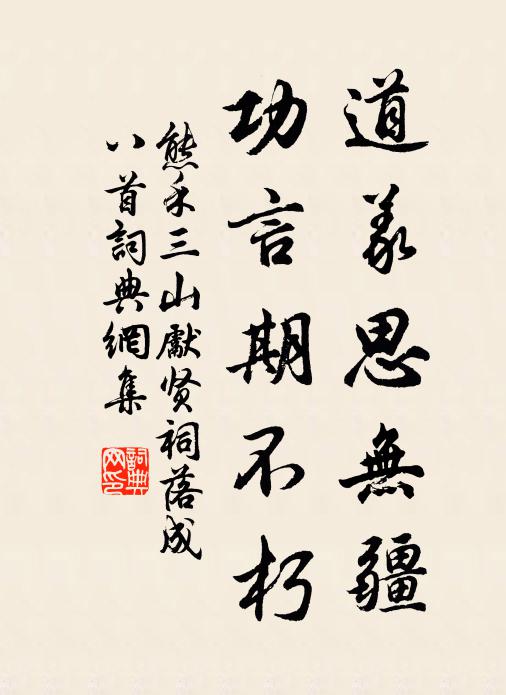 道義思無疆
功言期不朽
熊禾三山獻贤祠落成
八首詞典網集
詞典网印